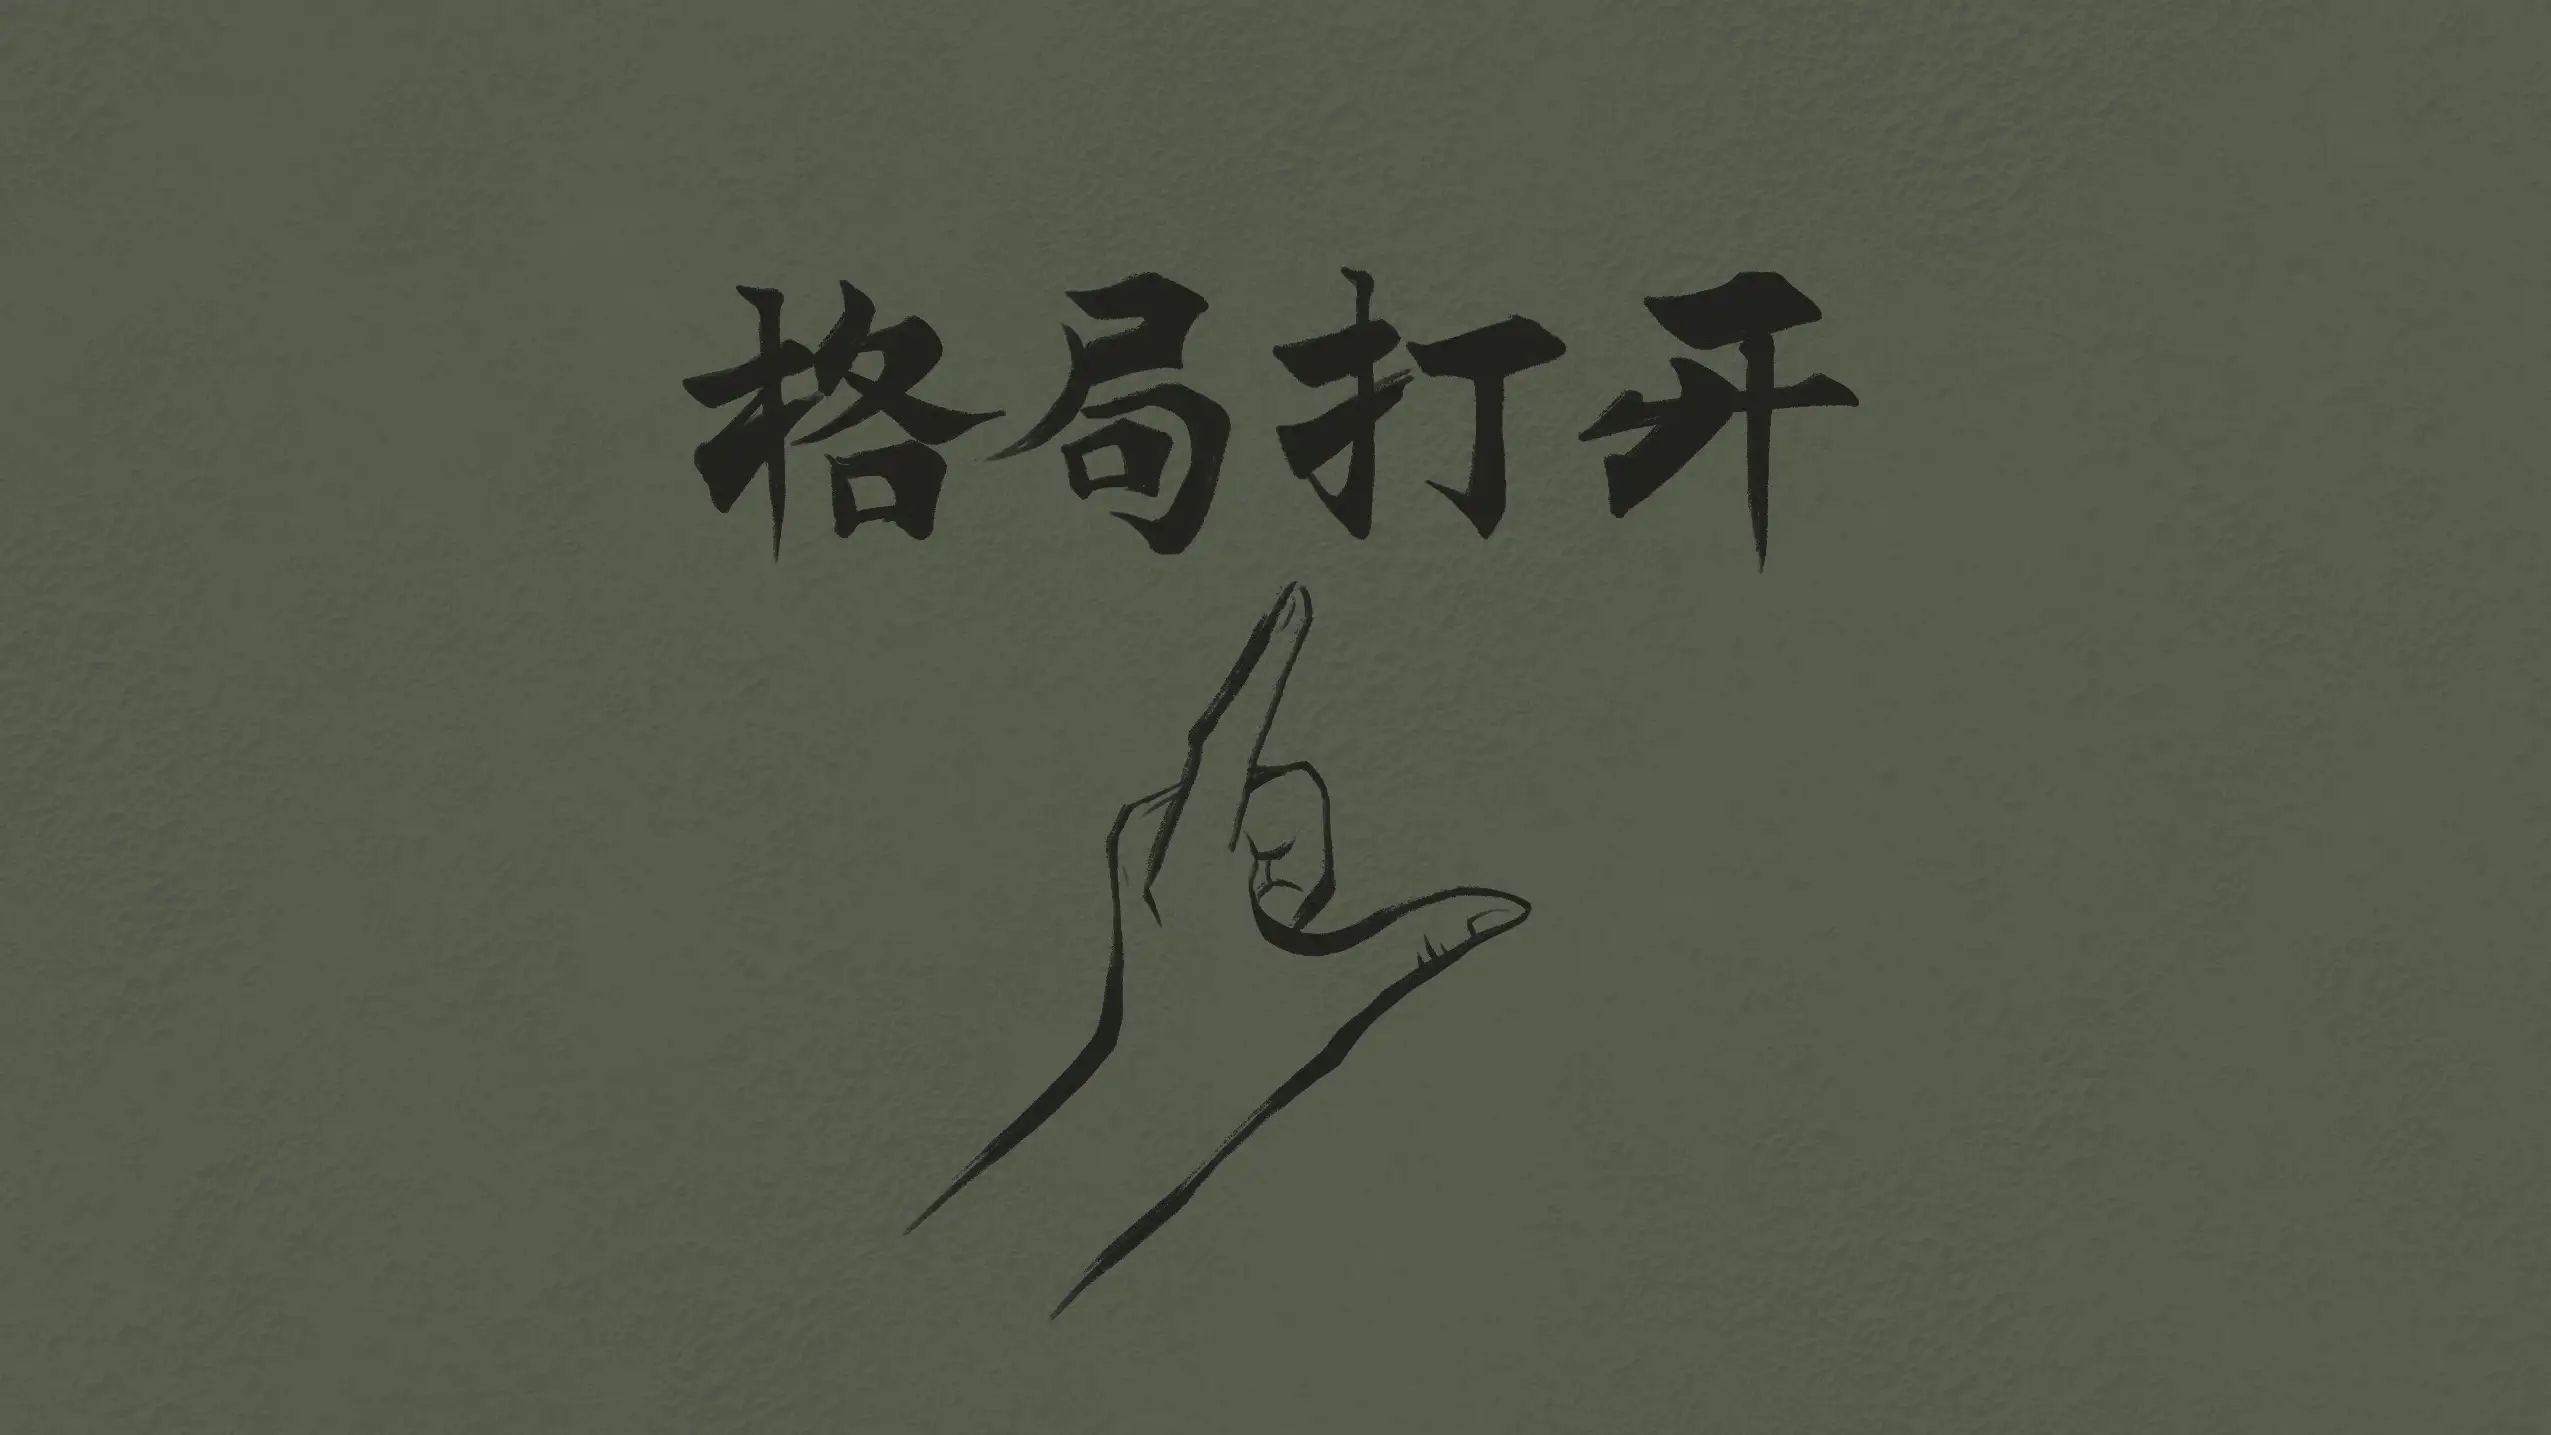 格局打开